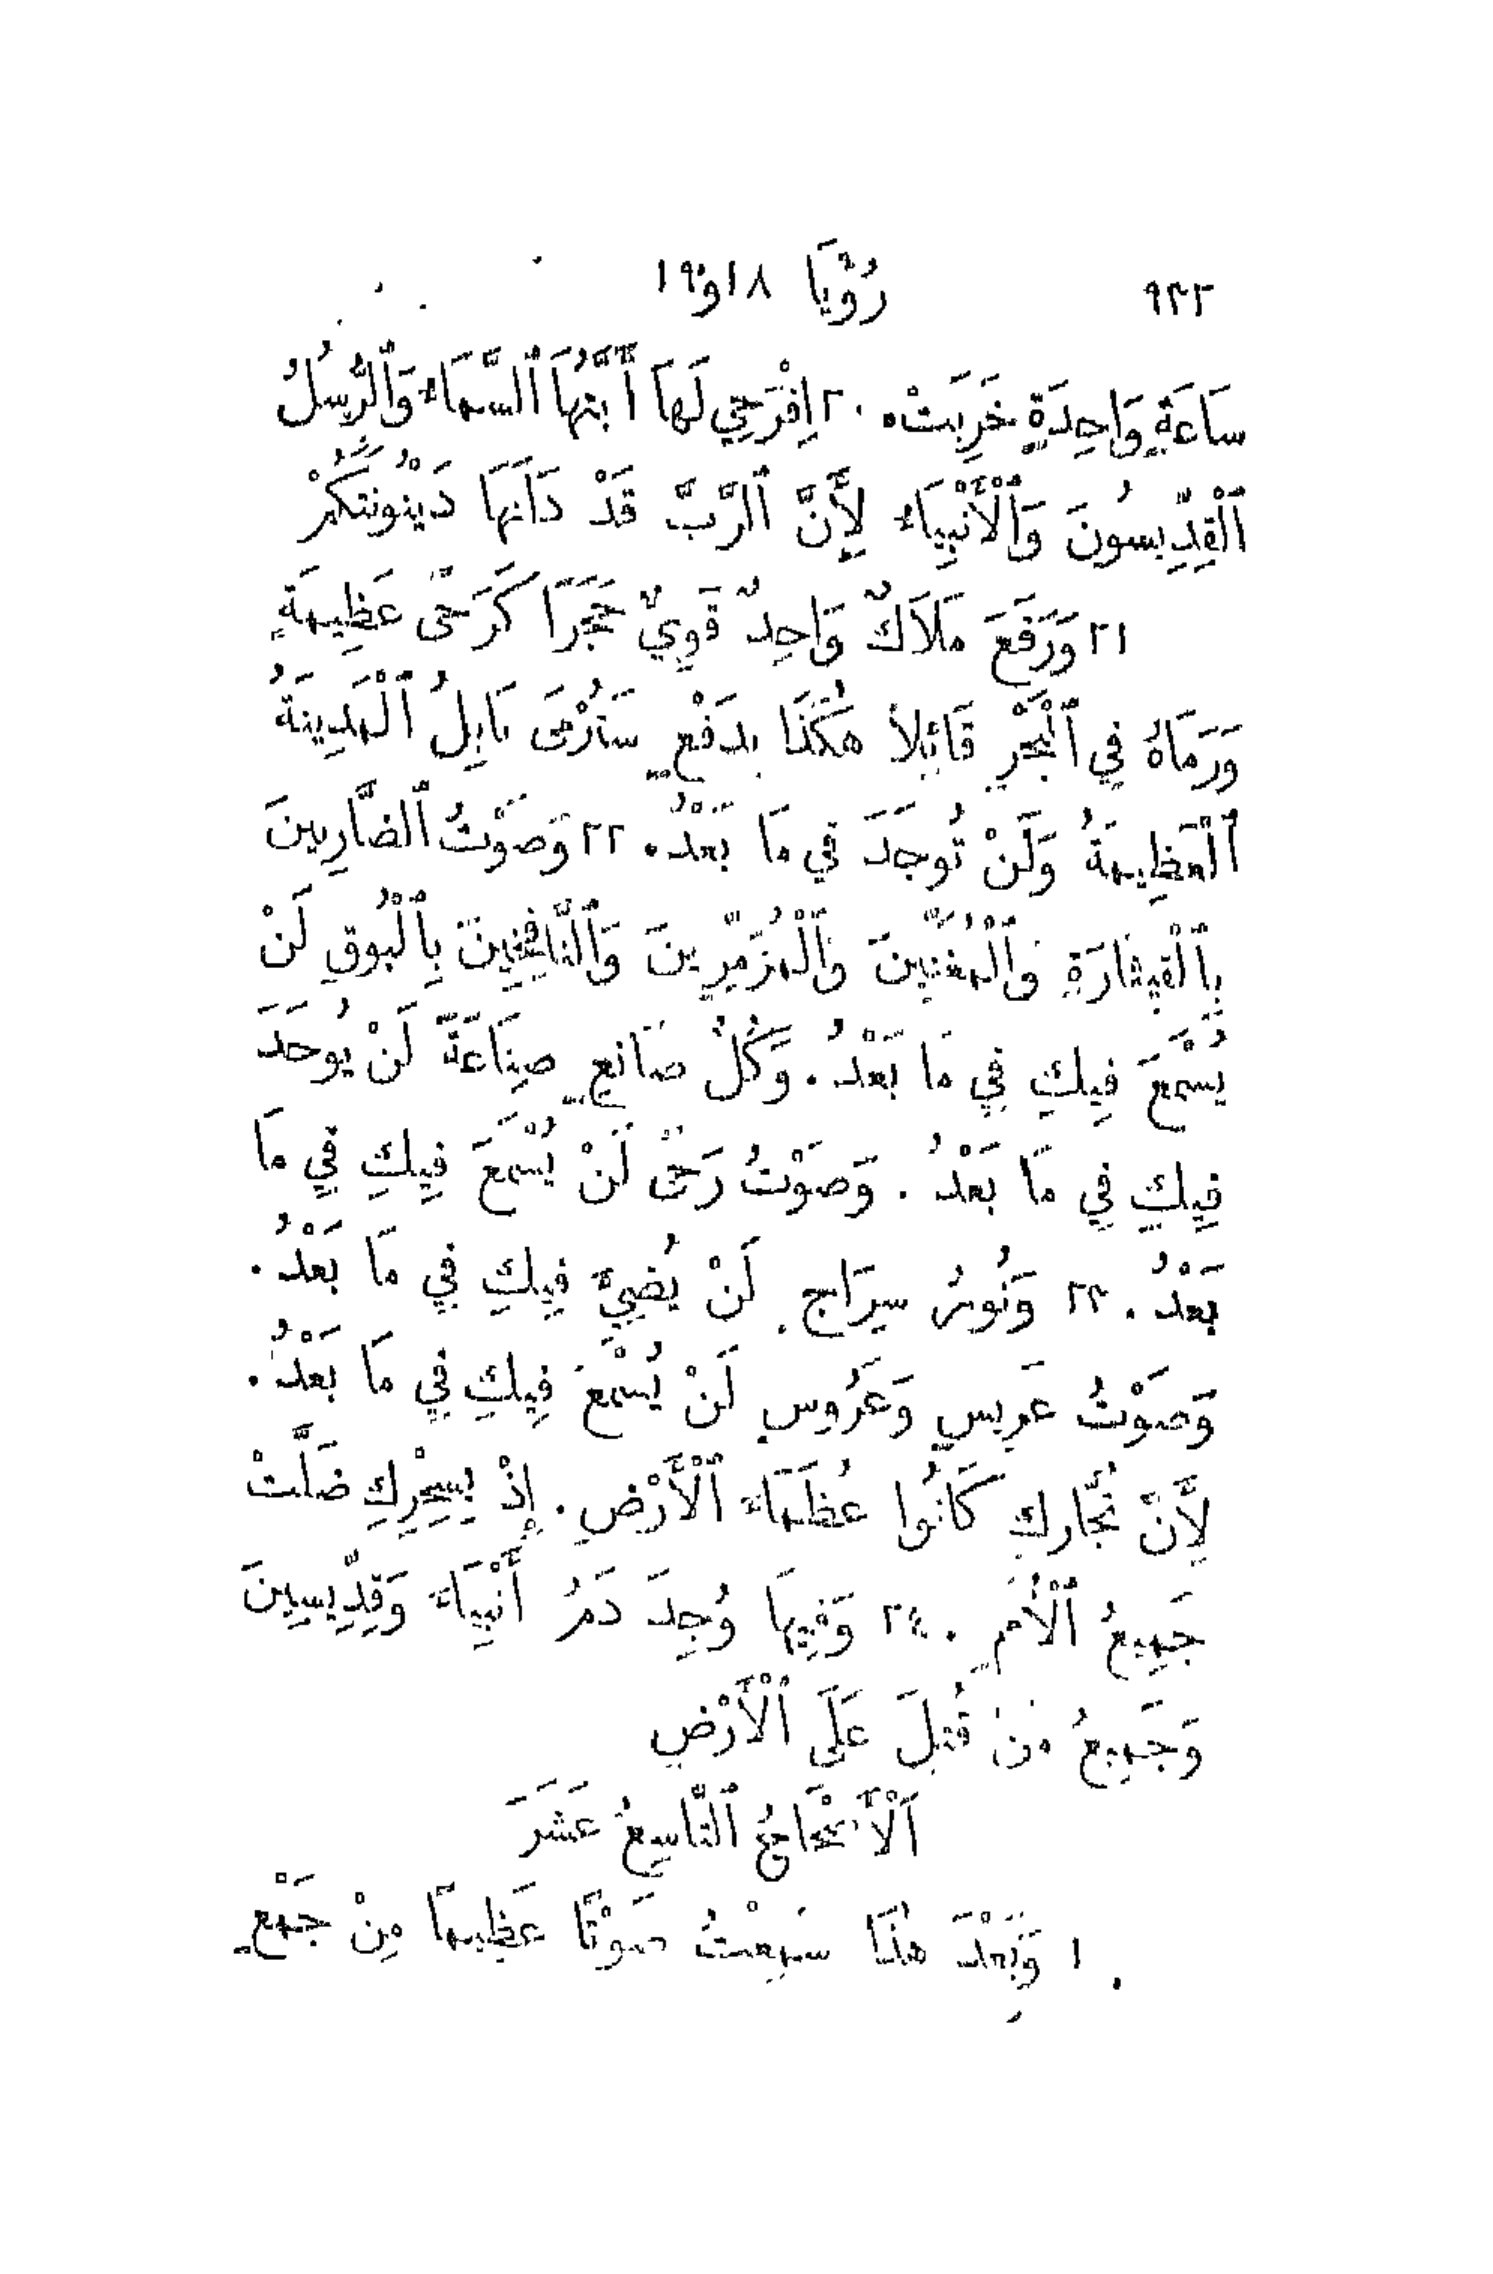 ٩٣٢ رُؤْيَا ١٨ و١٩
سَاعَةٍ وَاحِدَةٍ خَرِبَتْ. ٢٠ اِفْرَحِي لَهَا أَيَّتُهَا ٱلسَّمَاءُ وَٱلرُّسُلُ
ٱلْقِدِّيسُونَ وَٱلْأَنْبِيَاءُ لِأَنَّ ٱلرَّبَّ قَدْ دَانَهَا دَيْنُونَتَكُمْ
٢١ وَرَفَعَ مَلَاكٌ وَاحِدٌ قَوِيٌّ حَجَرًا كَرَحًى عَظِيمَةٍ
وَرَمَاهُ فِي ٱلْبَحْرِ قَائِلًا هٰكَذَا بِدَفْعٍ سَتُرْمَى بَابِلُ ٱلْمَدِينَةُ
ٱلْعَظِيمَةُ وَلَنْ تُوجَدَ فِي مَا بَعْدُ. ٢٢ وَصَوْتُ ٱلضَّارِبِينَ
بِٱلْقِيثَارَةِ وَٱلْمُغَنِّينَ وَٱلْمُزَمِّرِينَ وَٱلنَّافِخِينَ بِٱلْبُوقِ لَنْ
يُسْمَعَ فِيكِ فِي مَا بَعْدُ. وَكُلُّ صَانِعٍ صِنَاعَةً لَنْ يُوجَدَ
فِيكِ فِي مَا بَعْدُ. وَصَوْتُ رَحًى لَنْ يُسْمَعَ فِيكِ فِي مَا
بَعْدُ. ٢٣ وَنُورُ سِرَاجٍ لَنْ يُضِيءَ فِيكِ فِي مَا بَعْدُ.
وَصَوْتُ عَرِيسٍ وَعَرُوسٍ لَنْ يُسْمَعَ فِيكِ فِي مَا بَعْدُ.
لِأَنَّ تُجَّارَكِ كَانُوا عُظَمَاءَ ٱلْأَرْضِ. إِذْ بِسِحْرِكِ ضَلَّتْ
جَمِيعُ ٱلْأُمَمِ. ٢٤ وَفِيهَا وُجِدَ دَمُ أَنْبِيَاءَ وَقِدِّيسِينَ
وَجَمِيعُ مَنْ قُتِلَ عَلَى ٱلْأَرْضِ
اَلْأَصْحَاحُ ٱلتَّاسِعُ عَشَرَ
١ وَبَعْدَ هٰذَا سَمِعْتُ صَوْتًا عَظِيمًا مِنْ جَمْعٍ